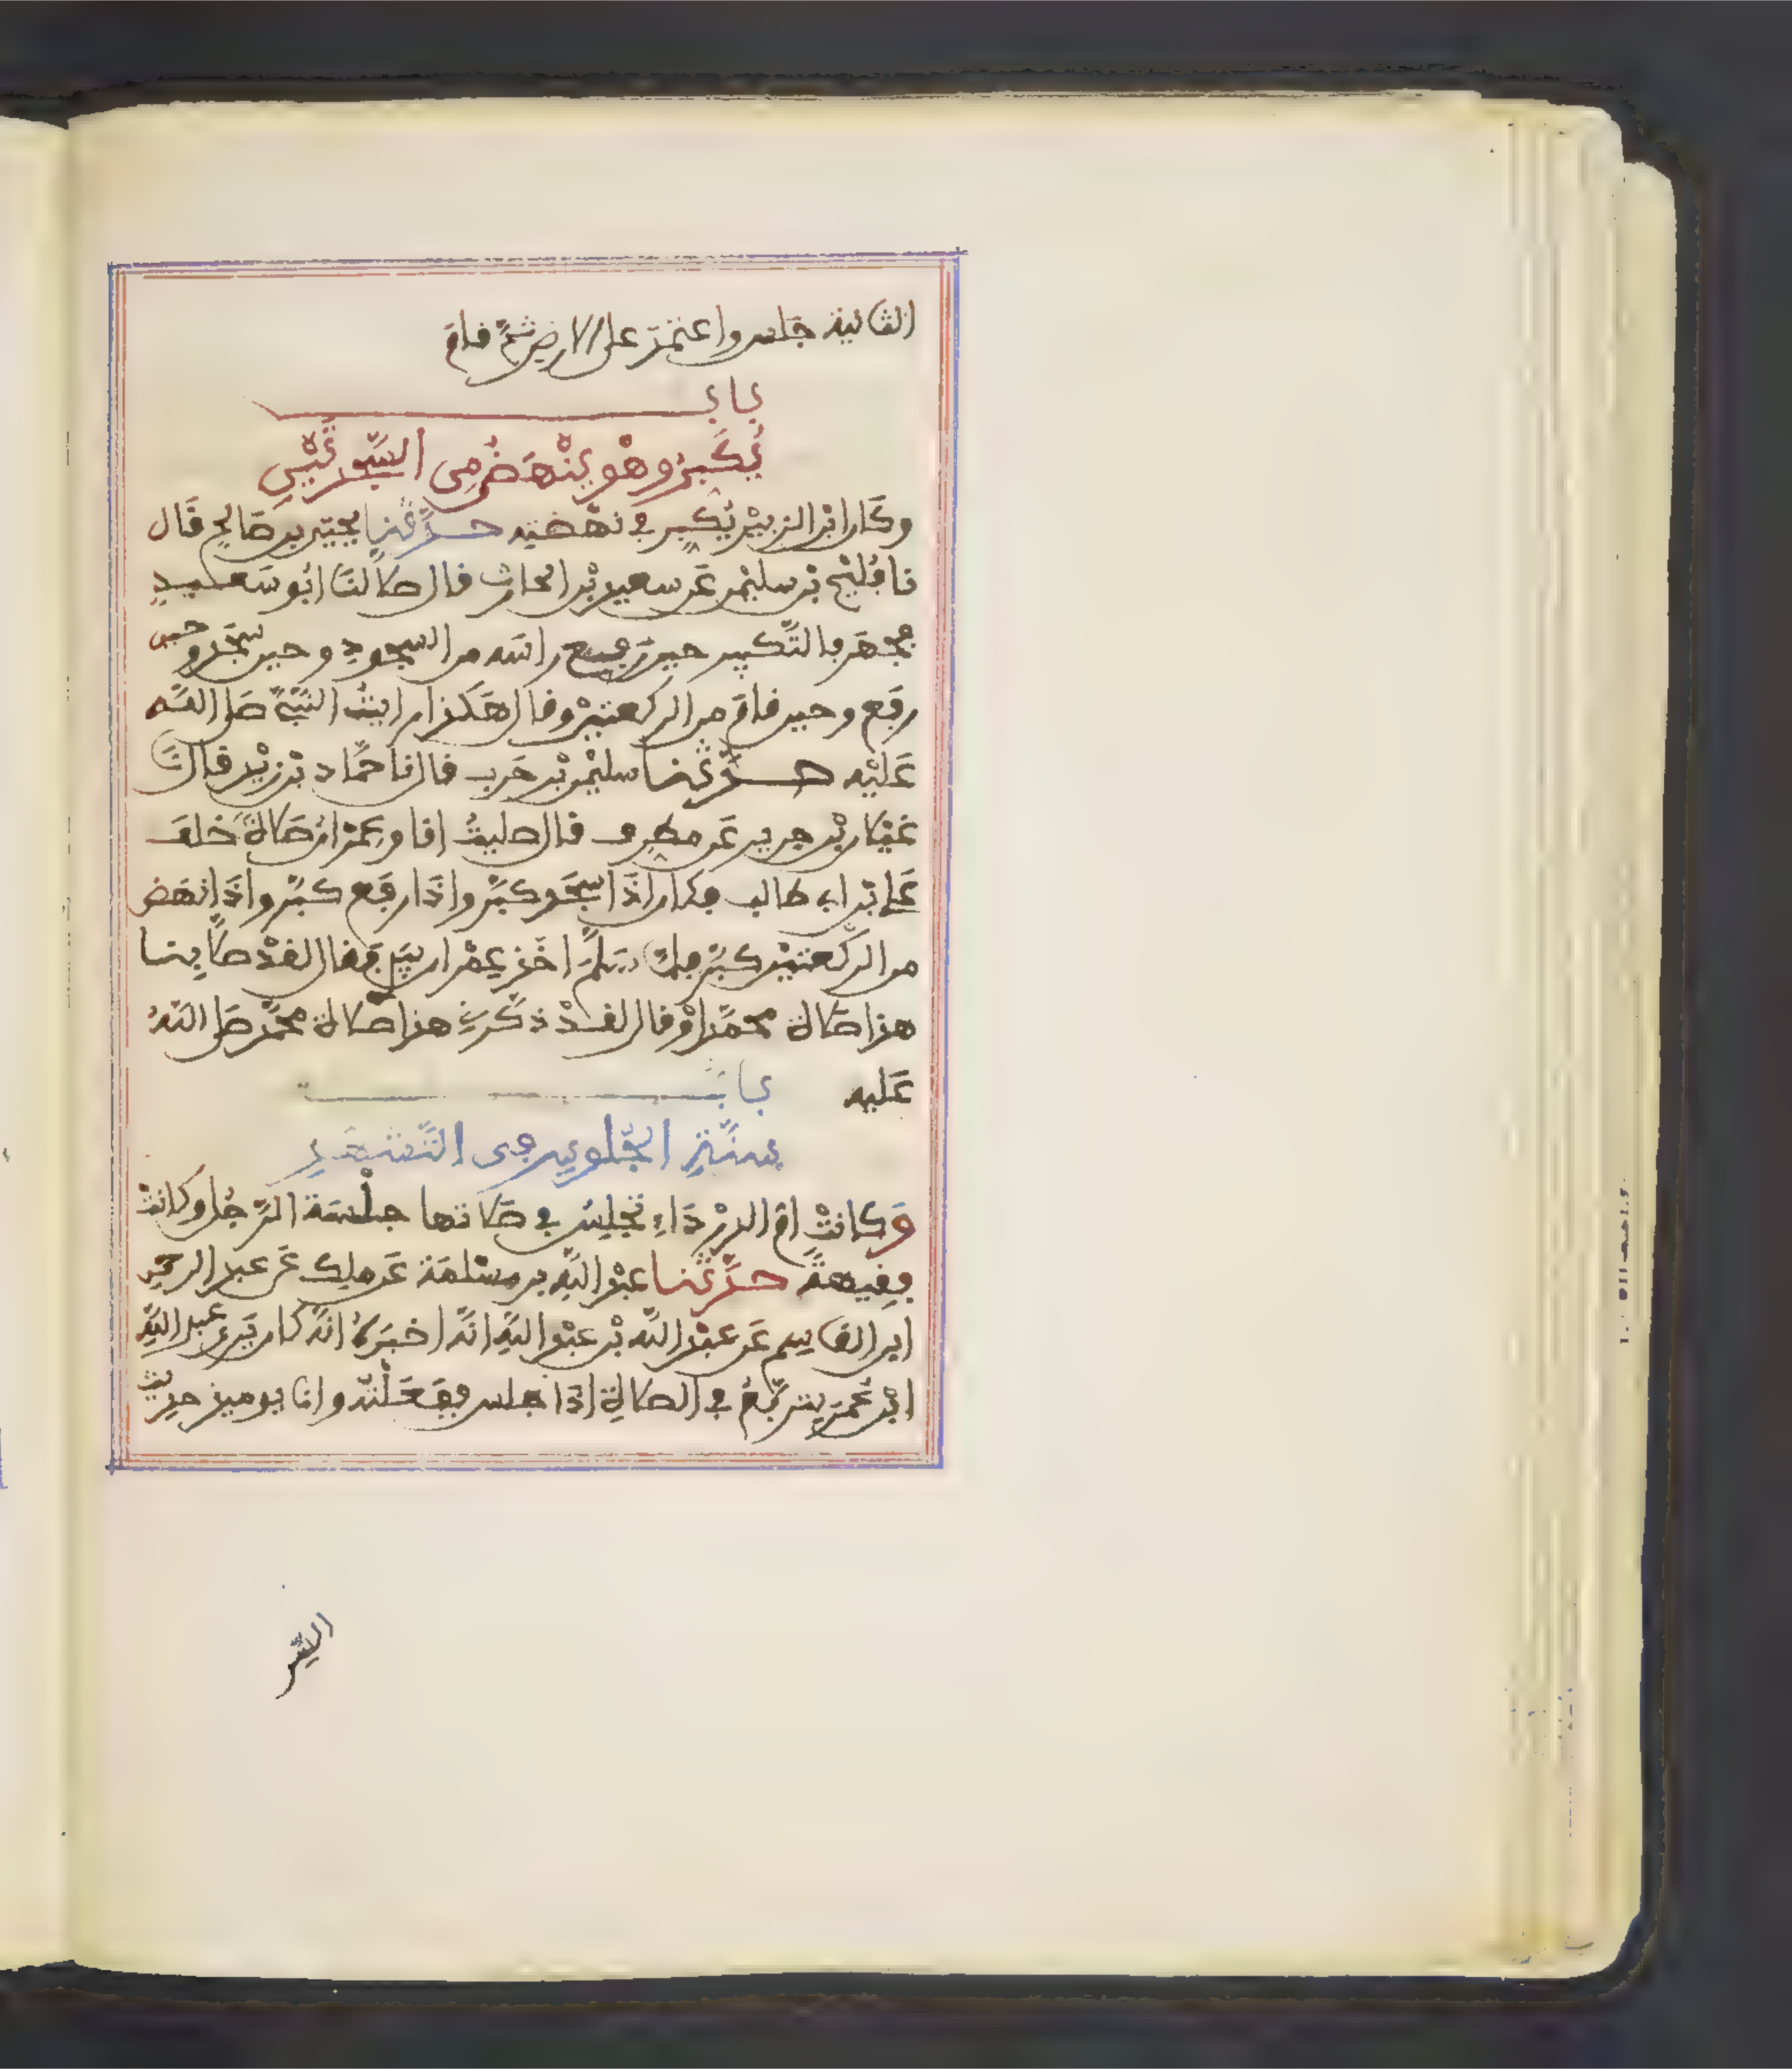 الثانية جلس واعتمد على الارض ثم قام
باب
يُكَبِّرُ وهْو يَنْهَضُ مِن السَّجْدَتَيْنِ
وكان ابن الزبيْر يُكبِر في نهْضتِه حدَّثنا يحيى بن صَالِح قال
نا فُليْح بْن سليْمن عَن سعيد بْن الحارث قال صَلى لنَا ابُو سَعِيدٍ
فجهَر بالتَّكبير حين رَفع راسَه من السجودِ وحين سَجَد وحين
رفع وحين قام من الركعتيْن وقال هَكذا رايتُ النَّبيَّ صلى اللَّه
عَليْه حدَّثنا سليْمن بْن حَرب قال نا حمَّاد بْن زيْد قال نَا
غيْلان بْن جرير عَن مطرِف قال صليتُ انا وعِمْران صَلاةً خلف
عَلي بْن ابي طالب فكان اذَا سجَد كبَّر واذَا رفَع كبَّر واذَا نهَض
من الرَّكعتيْن كبَّر فلمّا سَلَّمَ اخَذ عِمْران بيَدِي فقال لقدْ صلَّى بِنا
هذا صَلاة محمَّد اوْ قال لقدْ ذكَّرني هذا صَلاة محمَّد صَلى اللَّهُ
عَليه
باب
سنَّةِ الجُلوسِ في التَّشَهُّدِ
وَكانتْ ام الدرْدَاءِ تجْلِسُ في صَلاتها جِلْسَة الرَّجُل وكانتْ
فقِيهةً حدَّثنا عبْد اللَّه بن مسْلمَة عَن ملِك عَن عبد الرحمن
ابن القاسِم عَن عبْد اللَّه بْن عبْد اللَّهِ انَّه اخبَرَهُ انَّه كان يَرى عبد اللَّهِ
ابْن عُمَرَ يتربَّعُ في الصَلاةِ اذَا جلس ففَعَلْته وانا يوميذ حديث
السِّن